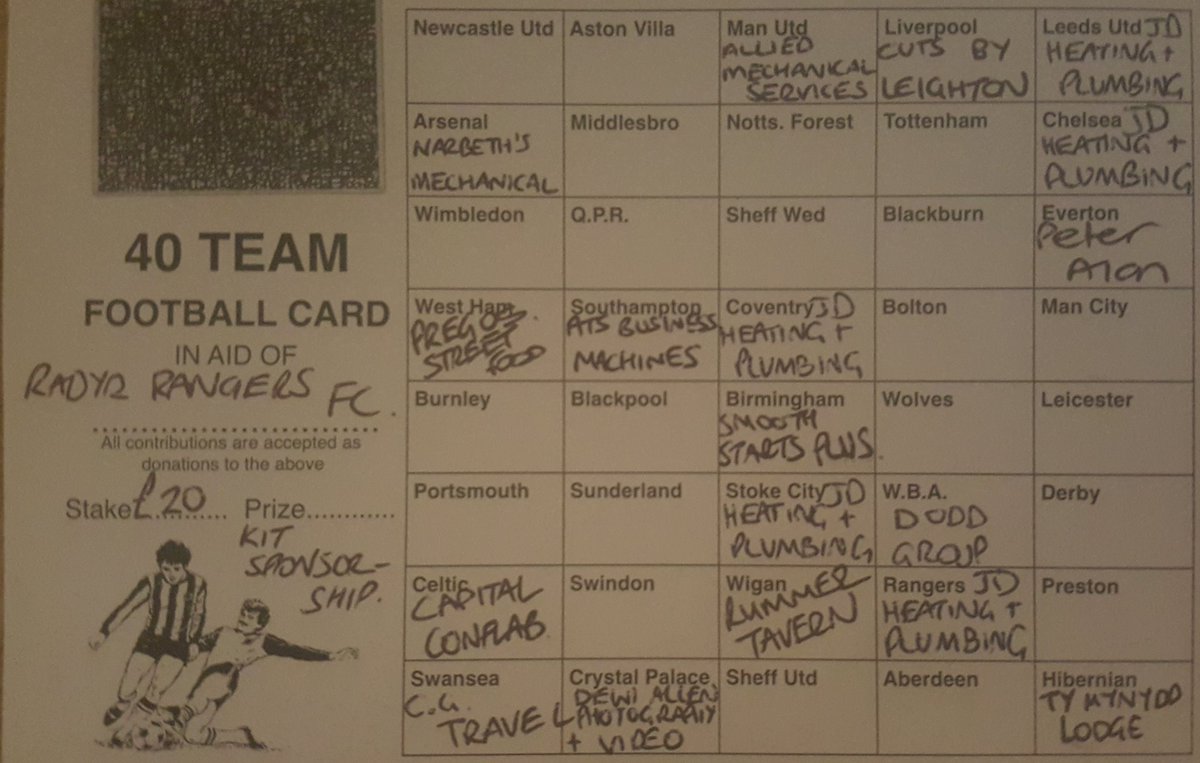 40 TEAM
FOOTBALL CARD
IN AID OF
RADYR RANGERS FC.
All contributions are accepted as
donations to the above
Stake £20 Prize............
KIT
SPONSOR-
SHIP.
Newcastle Utd
Aston Villa
Man Utd
ALLIED
MECHANICAL
SERVICES
Liverpool
CUTS BY
LEIGHTON
Leeds Utd JD
HEATING +
PLUMBING
Arsenal
NARBETH'S
MECHANICAL
Middlesbro
Notts. Forest
Tottenham
Chelsea JD
HEATING +
PLUMBING
Wimbledon
Q.P.R.
Sheff Wed
Blackburn
Everton
Peter
Alan
West Ham
PREGOS
STREET
FOOD
Southampton
ATS BUSINESS
MACHINES
Coventry JD
HEATING +
PLUMBING
Bolton
Man City
Burnley
Blackpool
Birmingham
SMOOTH
STARTS PLUS.
Wolves
Leicester
Portsmouth
Sunderland
Stoke City JD
HEATING +
PLUMBING
W.B.A.
DODD
GROUP
Derby
Celtic
CAPITAL
CONFLAB
Swindon
Wigan
RUMMER
TAVERN
Rangers JD
HEATING +
PLUMBING
Preston
Swansea
C.G.
TRAVEL
Crystal Palace
DEWI ALLEN
PHOTOGRAPHY
+ VIDEO
Sheff Utd
Aberdeen
Hibernian
TY MYNYDD
LODGE